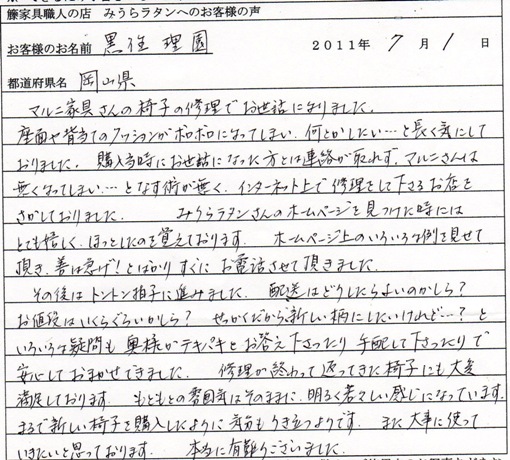 籐家具職人の店 みうらラタンへのお客様の声
お客様のお名前 黒住 理園 2011年 7月 1日
都道府県名 岡山県
マルニ家具さんの椅子の修理でお世話になりました。
座面や背当てのクッションがボロボロになってしまい、何とかしたい…と長く気にして
おりました。購入当時にお世話になった方とは連絡が取れず、マルニさんは
無くなってしまい…となす術が無く、インターネット上で修理をして下さるお店を
さがしておりました。 みうらラタンさんのホームページを見つけた時には
とても嬉しく、ほっとしたのを覚えております。 ホームページ上のいろいろな例を見せて
頂き、善は急げ!とばかりすぐにお電話させて頂きました。
その後はトントン拍子に進みました。 配送はどうしたらよいのかしら?
お値段はいくらぐらいかしら? せっかくだから新しい柄にしたいけれど…?と
いろいろな疑問も奥様がテキパキとお答え下さったり手配して下さったりで
安心しておまかせできました。 修理が終わって返ってきた椅子にも大変
満足しております。 もともとの雰囲気はそのままに、明るく若々しい感じになっています。
まるで新しい椅子を購入したように気分もうき立つようです。 また大事に使って
いきたいと思っております。 本当に有難うございました。